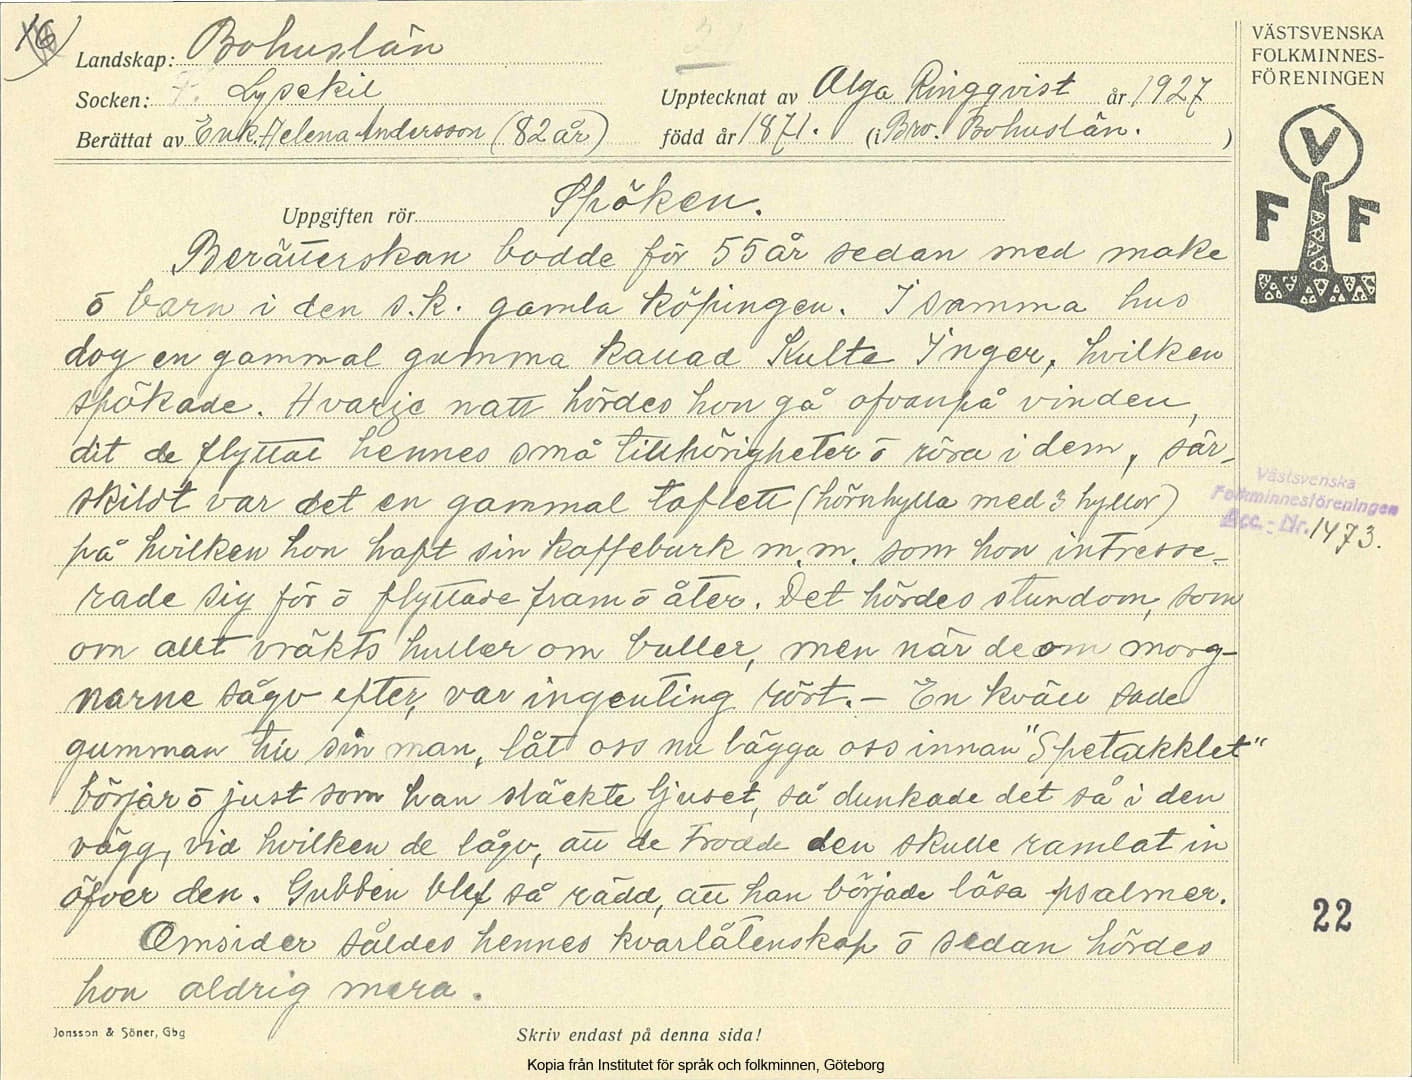 16)
Landskap: Bohuslän
Socken: F. Lysekil
Berättat av Enk. Helena Andersson (82 år)
Upptecknat av Olga Ringqvist år 1927
född år 1871. (i Bro. Bohuslän. )
VÄSTSVENSKA
FOLKMINNES-
FÖRENINGEN
V
F F
Uppgiften rör Spöken.
Berätterskan bodde för 55 år sedan med make
ō barn i den s.k. gamla köpingen. I samma hus
dog en gammal gumma kallad Kulta Inger, hvilken
spökade. Hvarje natt hördes hon gå ofvanpå vinden,
dit de flyttat hennes små tillhörigheter ō röra i dem, sär-
skildt var det en gammal taflett (hörnhylla med 3 hyllor)
på hvilken hon haft sin kaffeburk m.m. som hon intresse-
rade sig för ō flyttade fram ō åter. Det hördes stundom, som
om allt vräkts huller om buller, men när de om morg-
narne sågo efter, var ingenting rört. — En kväll sade
gumman till sin man, låt oss nu lägga oss innan "Spetakklet"
börjar ō just som han släckte ljuset, så dunkade det så i den
vägg, vid hvilken de lågo, att de trodde den skulle ramlat in
öfver den. Gubben blef så rädd, att han började läsa psalmer.
Omsider såldes hennes kvarlåtenskap ō sedan hördes
hon aldrig mera.
Västsvenska
Folkminnesföreningen
Acc. - Nr. 1473.
22
Jonsson & Söner, Gbg
Skriv endast på denna sida!
Kopia från Institutet för språk och folkminnen, Göteborg